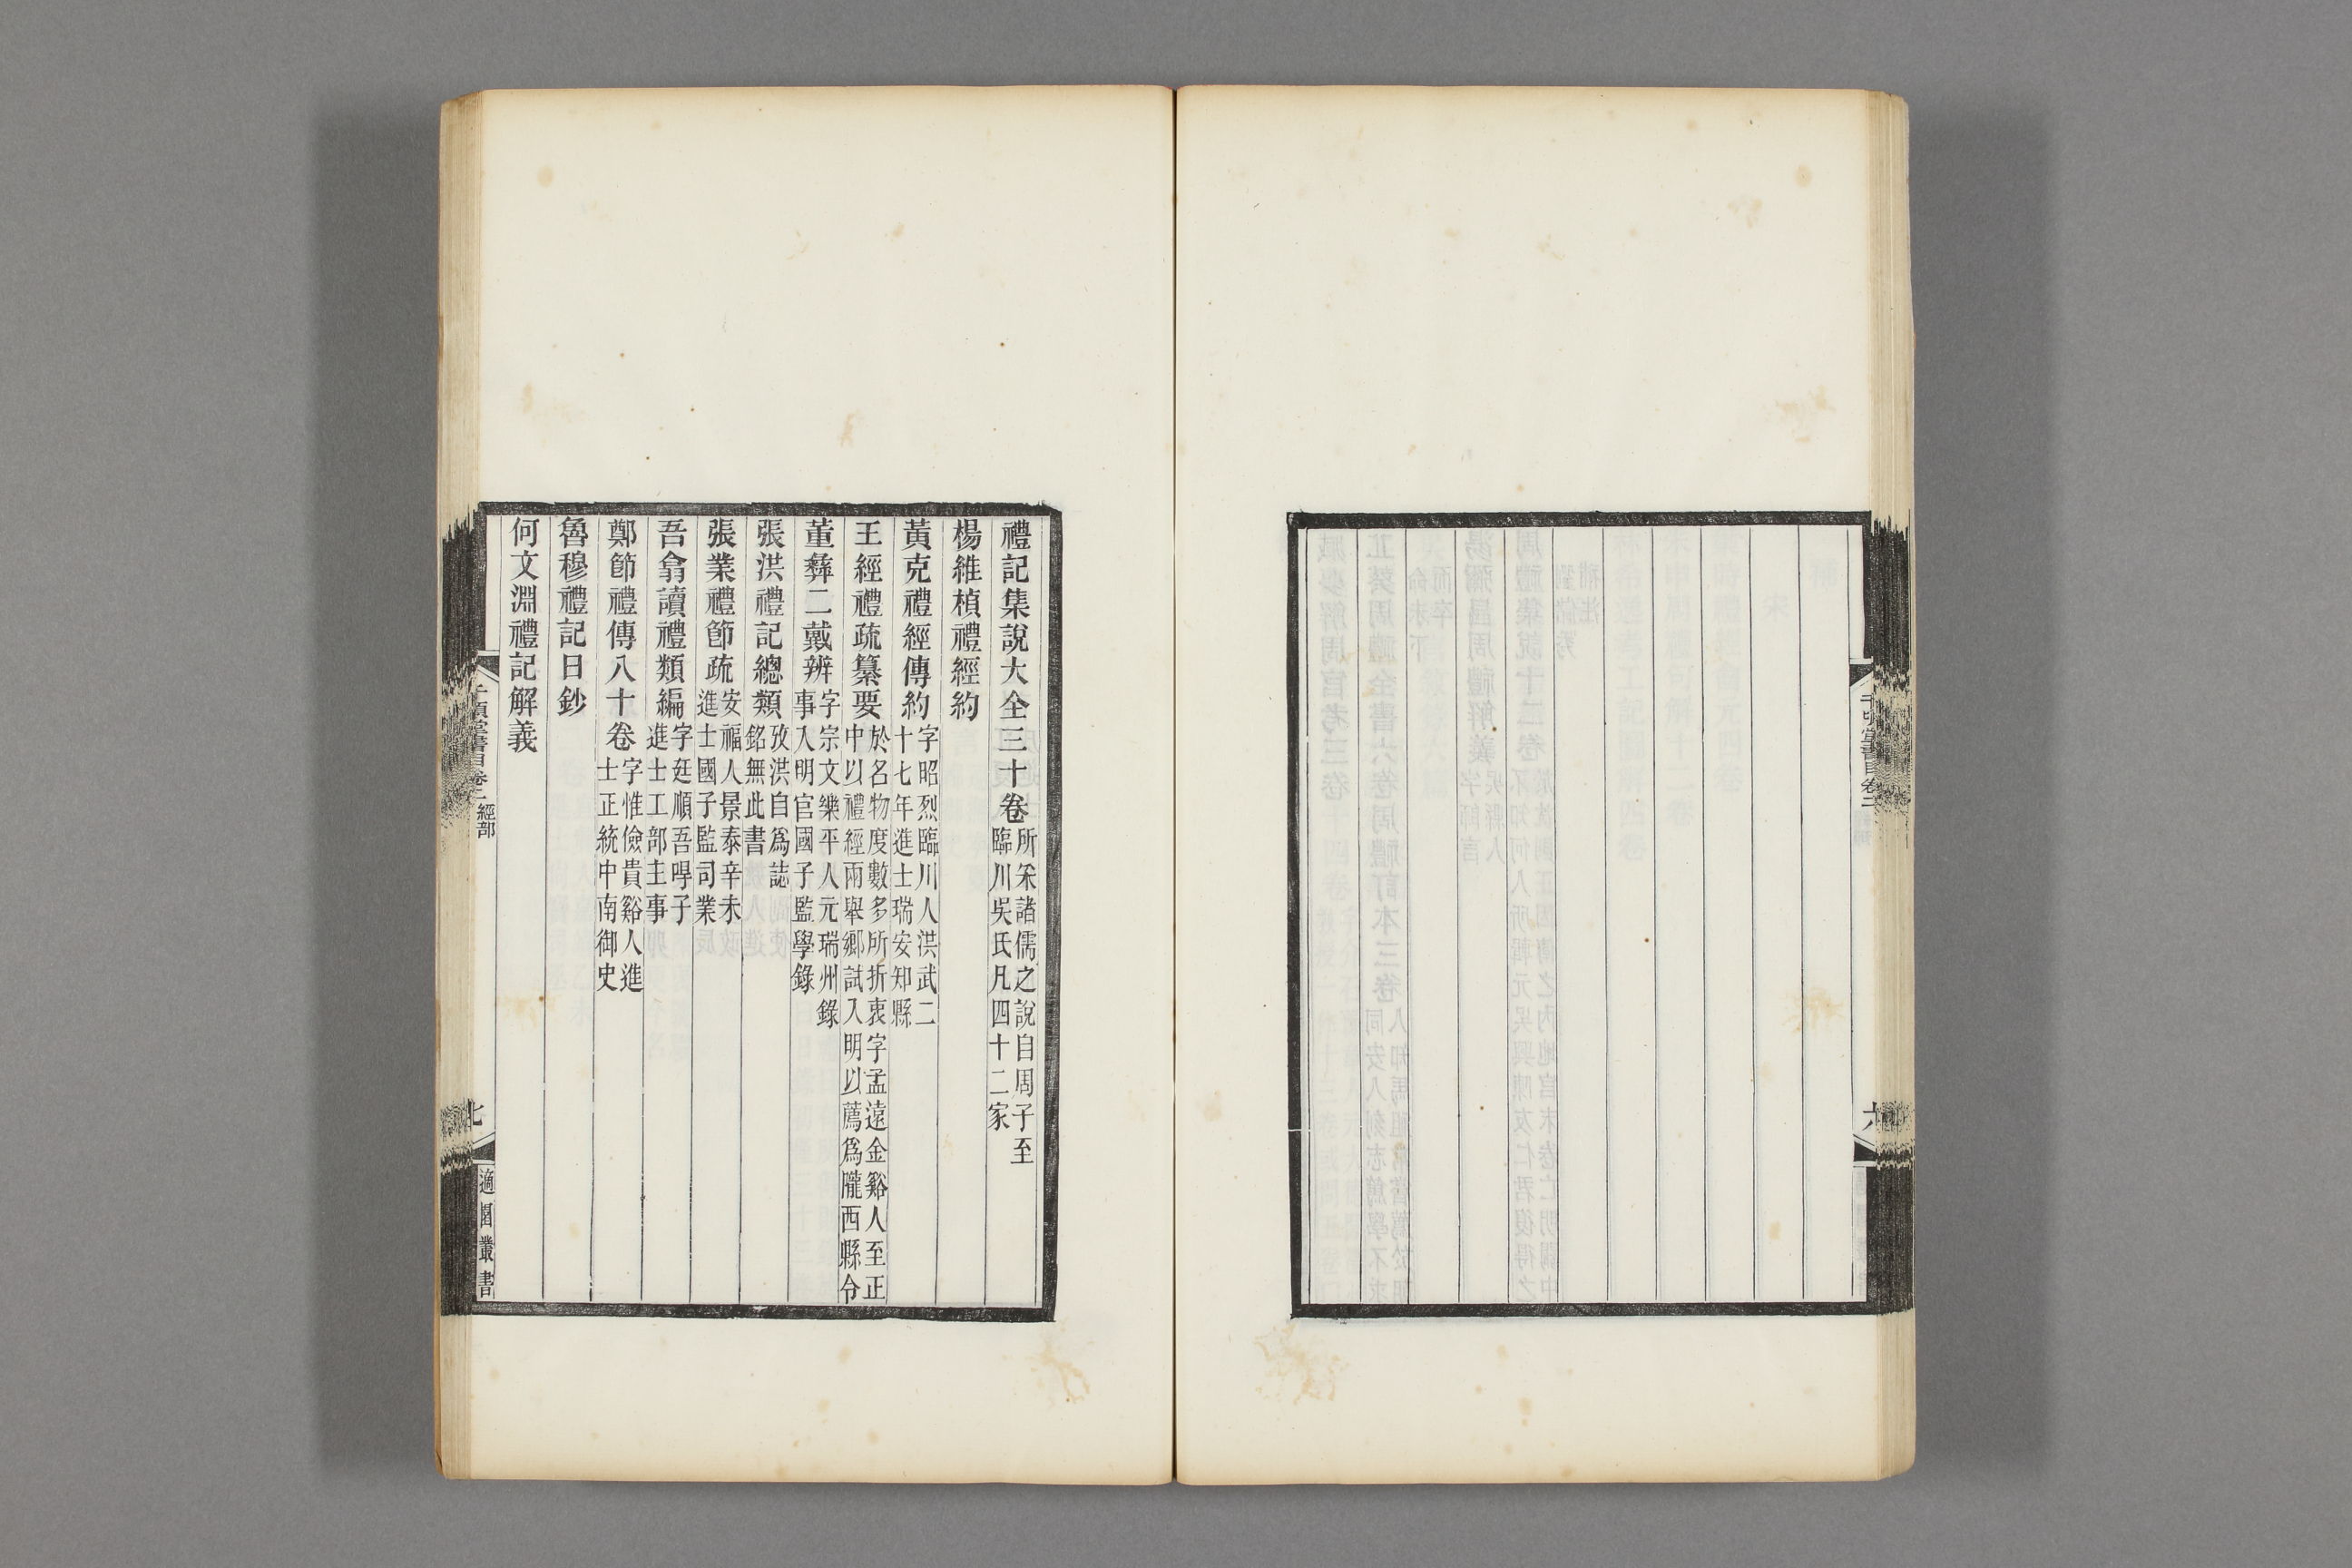 千頃堂書目卷二
六
禮記集說大全三十卷 所采諸儒之說自周子至臨川吳氏凡四十二家
楊維楨禮經約
黃克禮經傳約 字昭烈臨川人洪武二十七年進士瑞安知縣
王經禮疏纂要 於名物度數多所折衷字孟遠金谿人至正中以禮經兩舉鄉試入明以薦爲隴西縣令
董彝二戴辨 字宗文樂平人元瑞州錄事入明官國子監學錄
張洪禮記總類 攷洪自爲誌銘無此書
張業禮節疏 安福人景泰辛未進士國子監司業
吾翕讀禮類編 字廷順吾㝵子進士工部主事
鄭節禮傳八十卷 字惟儉貴谿人進士正統中南御史
魯穆禮記日鈔
何文淵禮記解義
千頃堂書目卷二 經部
七
適園叢書